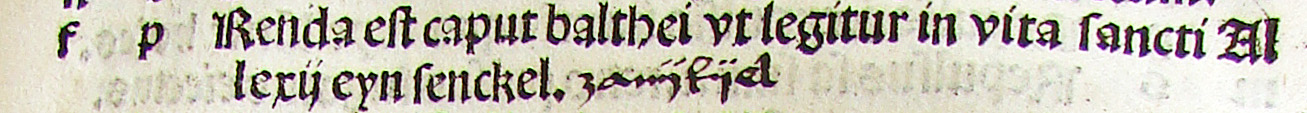 f p Renda est caput balthei vt legitur in vita sancti Al
lexij eyn senckel.